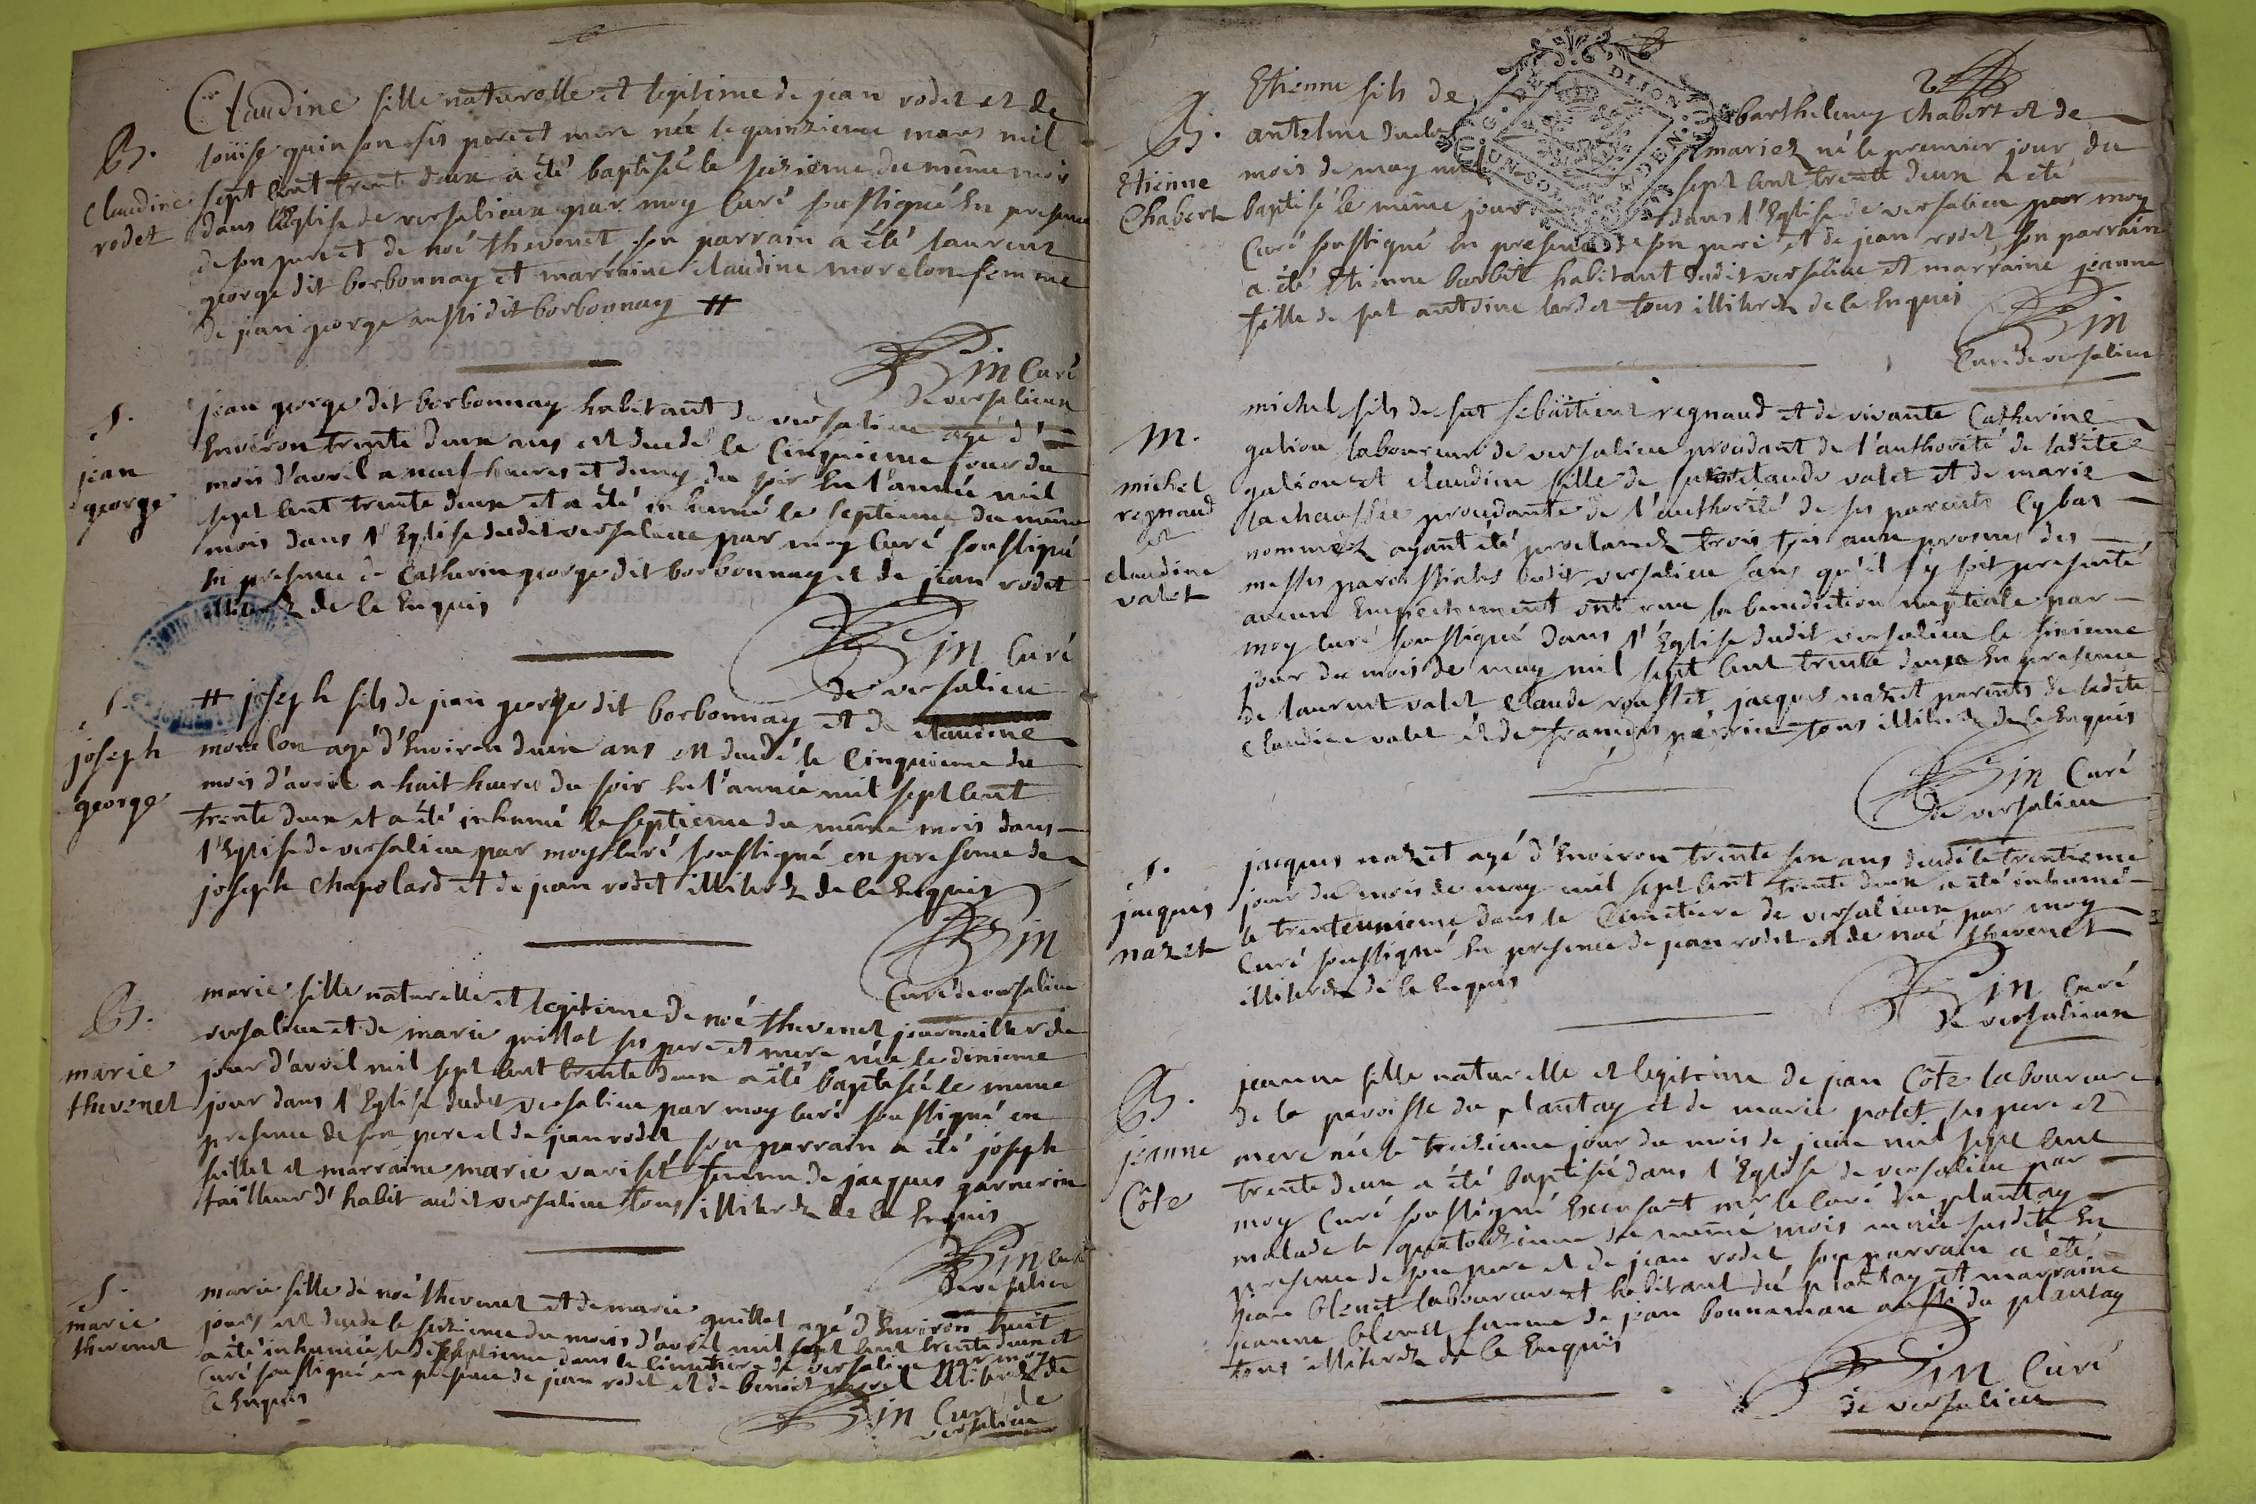 B.
Claudine
rodet
Claudine fille naturelle et legitime de jean rodet et de
loüise quinson ses pere et mere née le quinzieme mars mil
sept cent trente deux a été baptisée le seizieme du même mois
dans l'Eglise de versalieux par moy Curé soussigné En presence
de son pere et de noé thevenet son parrain a été laurent
george dit borbonnay et marraine claudine morelon femme
de jean george aussi dit borbonnay #
Bin Curé
de versalieux
S.
jean
george
jean george dit borbonnay habitant de versalieu agé d'
Environ trente deux ans est decedé le Cinquieme jour du
mois d'avril a neuf heures et demy du soir En l'année mil
sept cent trente deux et a été inhumé le septieme du même
mois dans l'Eglise dudit versalieu par moy Curé soussigné
En presence de Catherin george dit borbonnay et de jean rodet
illiterez de ce Enquis
Bin Curé
de versalieu
S.
joseph
george
# joseph fils de jean george dit borbonnay et de claudine
morelon agé d'Environ deux ans est decedé le Cinquieme du
mois d'avril a huit heures du soir En l'année mil sept cent
trente deux et a été inhumé le septieme du même mois dans
l'Eglise de versalieu par moy Curé soussigné en presence de
joseph Chapolard et de jean rodet illiterez de ce Enquis
Bin
Curé de versalieu
B.
marie
thevenet
marie fille naturelle et legitime de noé thevenet journailler de
versalieu et de marie guillot ses pere et mere née le dixieme
jour d'avril mil sept cent trente deux a été baptisée le meme
jour dans l'Eglise dudit versalieu par moy Curé soussigné en
presence de son pere et de jean rodet son parrain a été joseph
et marraine marie variset femme de jacques
tailleur d'habit audit versalieu tous illiterez de ce Enquis
Bin Curé
de versalieu
S.
marie
thevenet
marie fille de noé thevenet et de marie guillot agé d'Environ huit
jours est decedé le seizieme du mois d'avril mil sept cent trente deux et
a été inhumée le dixseptieme dans le Cimetiere de versalieu par moy
Curé soussigné en presence de jean rodet et de benoit illiterez de
ce Enquis
Bin Curé de
versalieu
B.
Etienne
Chabert
Etienne fils de barthelemy Chabert et de
antelme mariez né le premier jour du
mois de may mil sept cent trente deux a été
baptisé le même jour dans l'Eglise de versalieu par moy
Curé soussigné En presence de son pere et de jean rodet son parrain
a été Etienne barbet habitant dudit versalieu et marraine jeanne
fille de fut antoine tardet tous illiterez de ce Enquis
Bin
Curé de versalieu
M.
michel
regnaud
et
claudine
valet
michel fils de fut sebastient regnaud et de vivante Catherine
galion laboureur de versalieu procedant de l'authorité de ladite
galion et claudine fille de fut claude valet et de marie
lachaussée procedante de l'authorité de ses parents Cy bas
nommez ayant été proclamez trois fois aux prosnes des
messes paroissiales dudit versalieu sans qu'il s'y soit presenté
aucun Empechement ont recu la benediction nuptiale par
moy Curé soussigné dans l'Eglise dudit versalieu le sixieme
jour du mois de may mil sept cent trente deux En presence
de laurent valet Claude rousset, jacques nazet parents de ladite
Claudine valet et de francois perrin tous illiterez de ce Enquis
Bin Curé
de versalieu
S.
jacques
nazet
jacques nazet agé d'Environ trente six ans decedé le trentieme
jour du mois de may mil sept cent trente deux a été inhumé
le trenteunieme dans le Cimetiere de versalieux par moy
Curé soussigné En presence de jean rodet et de noé thevenet
illiterez de ce Enquis
Bin Curé
de versalieux
B.
jeanne
Côte
jeanne fille naturelle et legitime de jean Côte laboureur
de la paroisse du plantay et de marie polet ses pere et
mere née le treizieme jour du mois de juin mil sept cent
trente deux a été baptisée dans l'Eglise de versalieu par
moy Curé soussigné Excusant mr le Curé du plantay
malade le quatorzieme du meme mois année susdite En
presence de son pere et de jean rodet son parrain a été
jean blenet laboureur et habitant du plantay et marraine
jeanne blenet femme de jean bonnaman aussi du plantay
tous illiterez de ce Enquis
Bin Curé
de versalieu